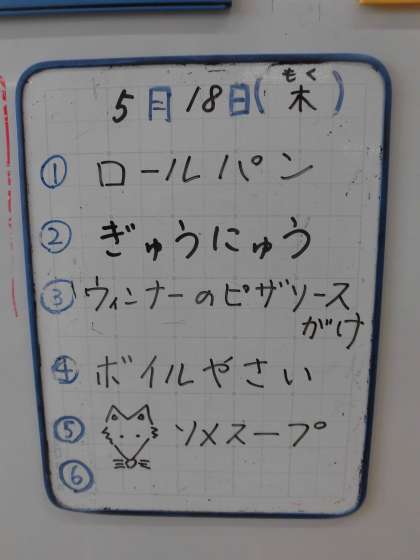 5月18日(木)
もく
① ロールパン
② ぎゅうにゅう
③ ウィンナーのピザソース
がけ
④ ボイルやさい
⑤ ソメスープ
⑥